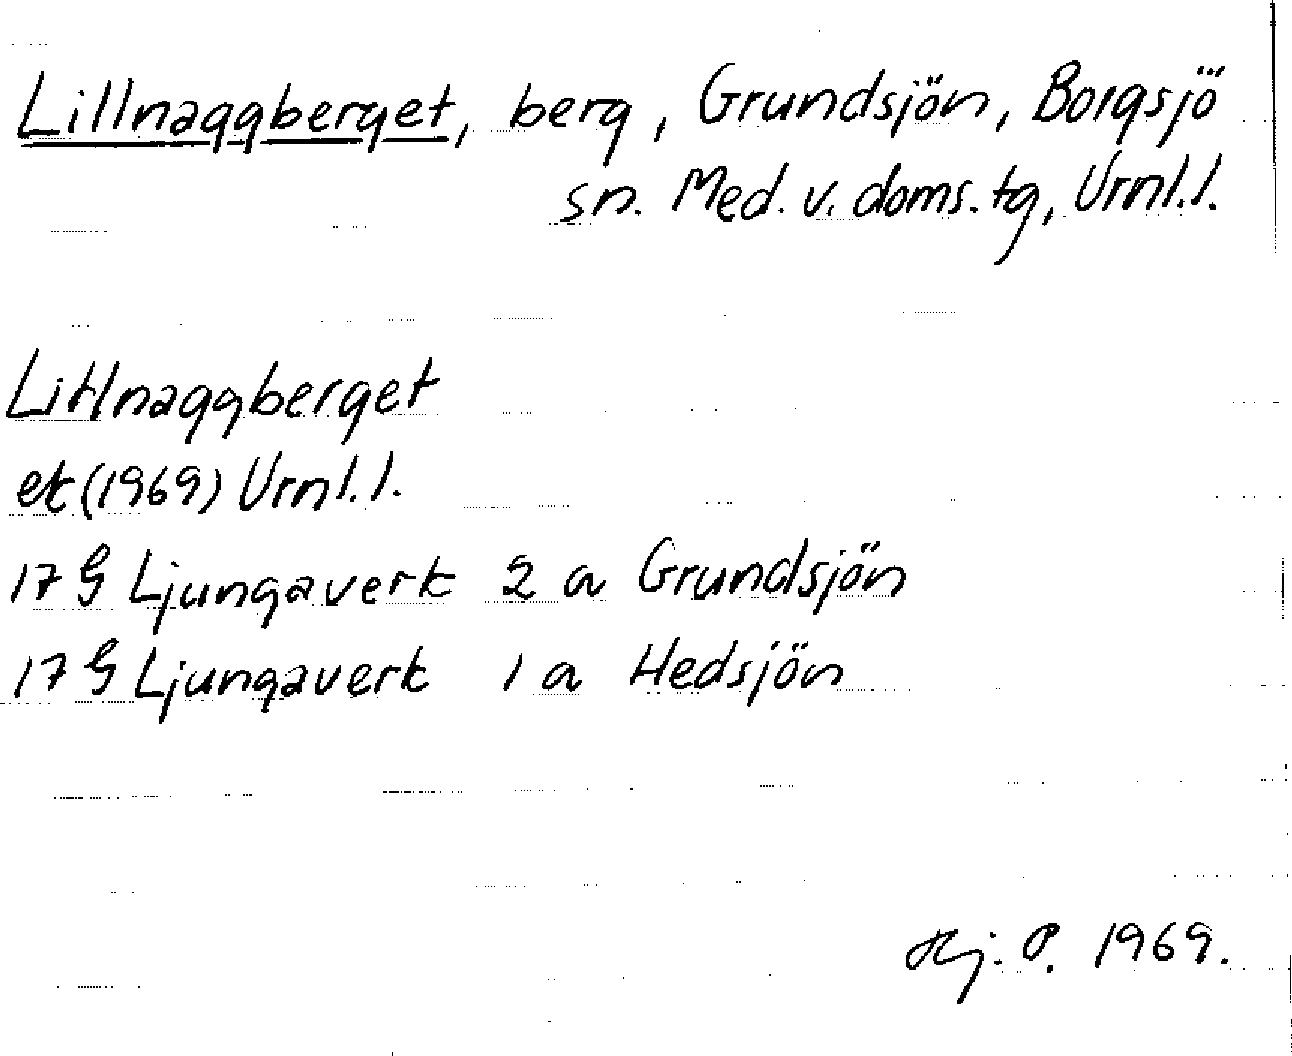 Lillnaggberget, berg, Grundsjön, Borgsjö
sn. Med. v. doms. tg, Vrnl.l.
Litlnaggberget
ek (1969) Vrnl.l.
17 G Ljungaverk 2 a Grundsjön
17 G Ljungaverk 1 a Hedsjön
Hj. P. 1969.